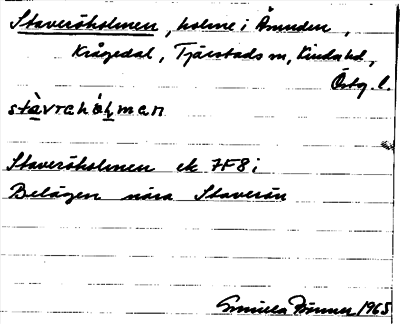 Staveröholmen, holme i Ämmern,
Krågedal, Tjärstads sn, Kinda hd,
Östg. l.
stàvrahólmen
Staveröholmen ek 7F8i
Belägen nära Staverön
Gunilla 1965